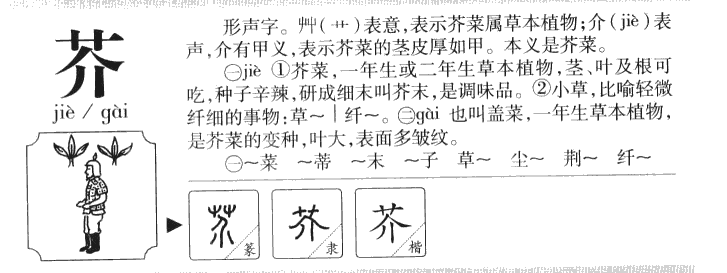 芥
jiè / gài
形声字。艸(艹)表意,表示芥菜属草本植物;介(jiè)表
声,介有甲义,表示芥菜的茎皮厚如甲。本义是芥菜。
㊀jiè ①芥菜,一年生或二年生草本植物,茎、叶及根可
吃,种子辛辣,研成细末叫芥末,是调味品。②小草,比喻轻微
纤细的事物:草~|纤~。㊁gài 也叫盖菜,一年生草本植物,
是芥菜的变种,叶大,表面多皱纹。
㊀~菜 ~蒂 ~末 ~子 草~ 尘~ 荆~ 纤~
芥 篆
芥 隶
芥 楷